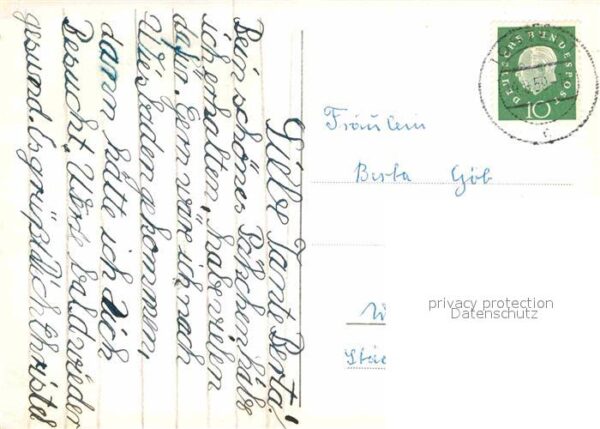 Liebe Tante Berta!
Dein schönes Päckchen habe
ich erhalten, habe vielen
dafür. Gern wäre ich nach
Wiesbaden gekommen,
dann hätt ich Dich
Besucht. Werde bald wieder
gesund. Es grüßt Dich Christel
DEUTSCHE BUNDESPOST
10
Fräulein
Berta Göb
privacy protection
Datenschutz